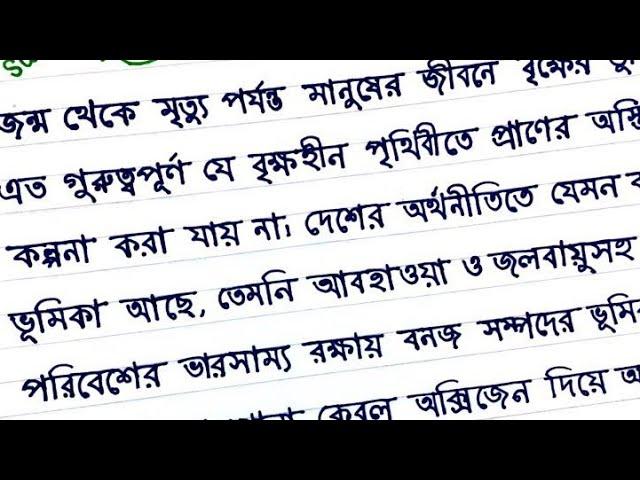 জন্ম থেকে মৃত্যু পর্যন্ত মানুষের জীবনে বৃক্ষের
এত গুরুত্বপূর্ণ যে বৃক্ষহীন পৃথিবীতে প্রাণের
কল্পনা করা যায় না। দেশের অর্থনীতিতে যেমন
ভূমিকা আছে, তেমনি আবহাওয়া ও জলবায়ুসহ
পরিবেশের ভারসাম্য রক্ষায় বনজ সম্পদের
কেবল অক্সিজেন দিয়ে